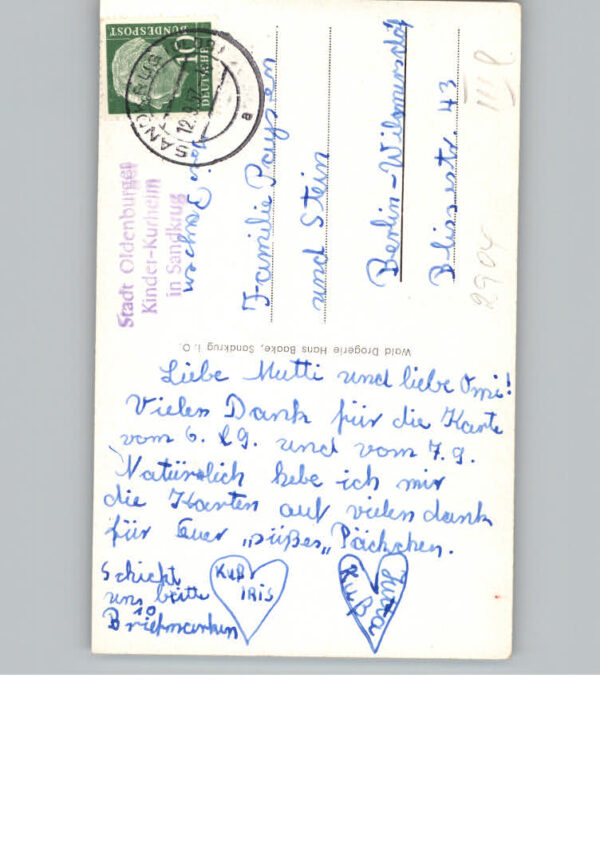 DEUTSCHE
BUNDESPOST
10
SANDKRUG
12.9.57
a
Stadt Oldenburg
Kinder-Kurheim
in Sandkrug
Familie Paysen
und Stein
Berlin-Wilmersdorf
Blissestr. 43
III P
Wald Drogerie Hans Baake, Sandkrug i. O.
Liebe Mutti und liebe Omi!
Vielen Dank für die Karte
vom 6. 9. und vom 7. 9.
Natürlich hebe ich mir
die Karten auf vielen dank
für Euer „süßes„ Päckchen.
Schickt
uns bitte
10
Briefmarken
Kuß
IRIS
Kuß
Jutta